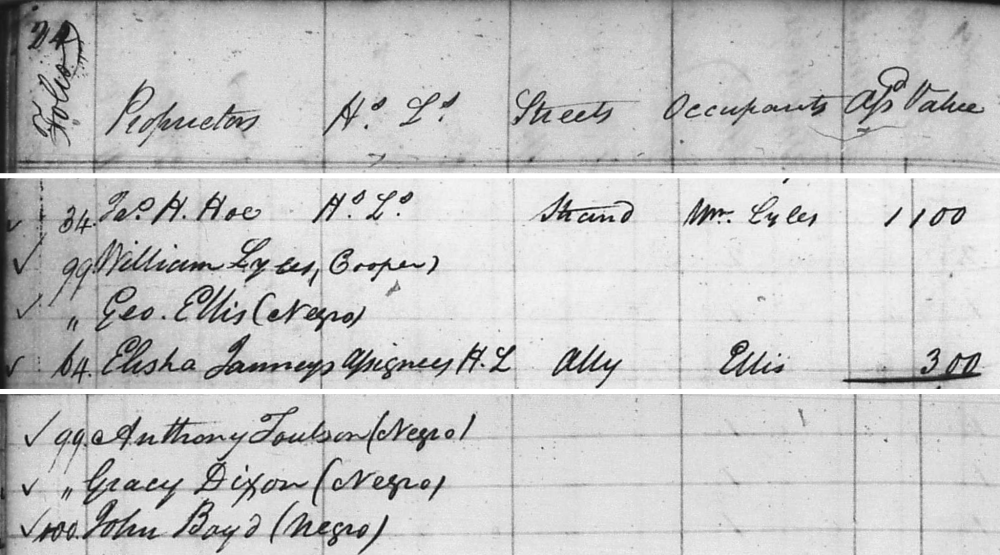 24
Folio Proprietors H.s L.s Streets Occupants Ap.d Value
34. Jas. H. Hoe H.s L.s Strand Wm. Lyles 1100
99 William Lyles, Cooper)
" Geo. Ellis (Negro)
64. Elisha Janneys Assignees H. L Ally Ellis 300
99. Anthony Toulson (Negro)
" Gracy Dixon (Negro)
100. John Boyd (Negro)